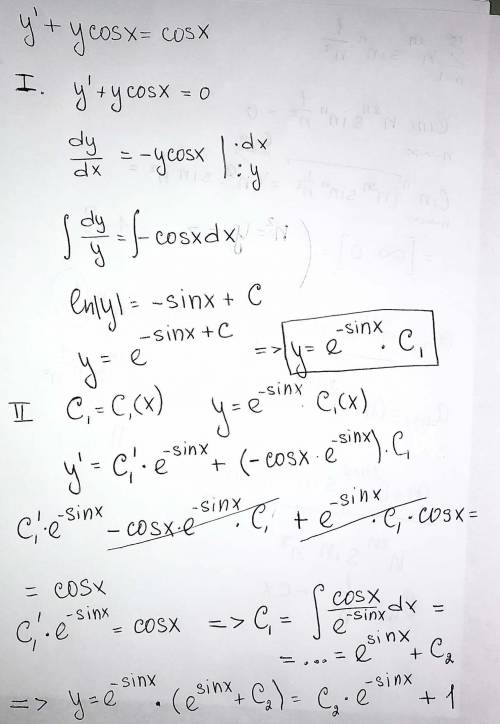 y' + ycosx = cosx
I. y' + ycosx = 0
dy/dx = -ycosx | ·dx :y
∫ dy/y = ∫ -cosxdx
ln|y| = -sinx + C
y = e^(-sinx + C) => y = e^(-sinx) · C₁
II C₁ = C₁(x) y = e^(-sinx) · C₁(x)
y' = C₁' · e^(-sinx) + (-cosx · e^(-sinx)) · C₁
C₁' · e^(-sinx) - cosx · e^(-sinx) · C₁ + e^(-sinx) · C₁ · cosx =
= cosx
C₁' · e^(-sinx) = cosx => C₁ = ∫ cosx/e^(-sinx) dx =
= ... = e^(sinx) + C₂
=> y = e^(-sinx) · (e^(sinx) + C₂) = C₂ · e^(-sinx) + 1